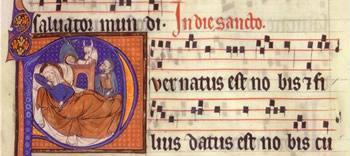 saluator mun di. In die sancto.
Puer natus est no bis & fi
lius datus est no bis cu